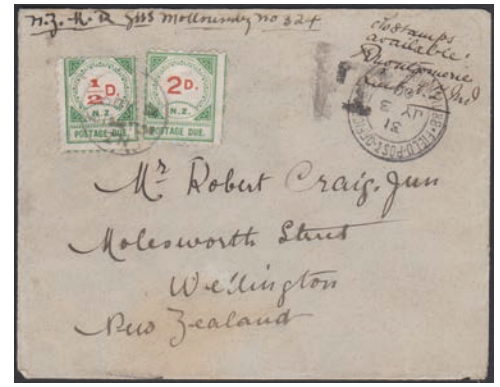 N.Z.M.R. No 324
No stamps
available
½D.
N.Z.
POSTAGE DUE.
2D.
N.Z.
POSTAGE DUE.
T
FIELD-POST-OFFICE
31
JY
3
Mr Robert Craig. Jun
Molesworth Street
Wellington
New Zealand